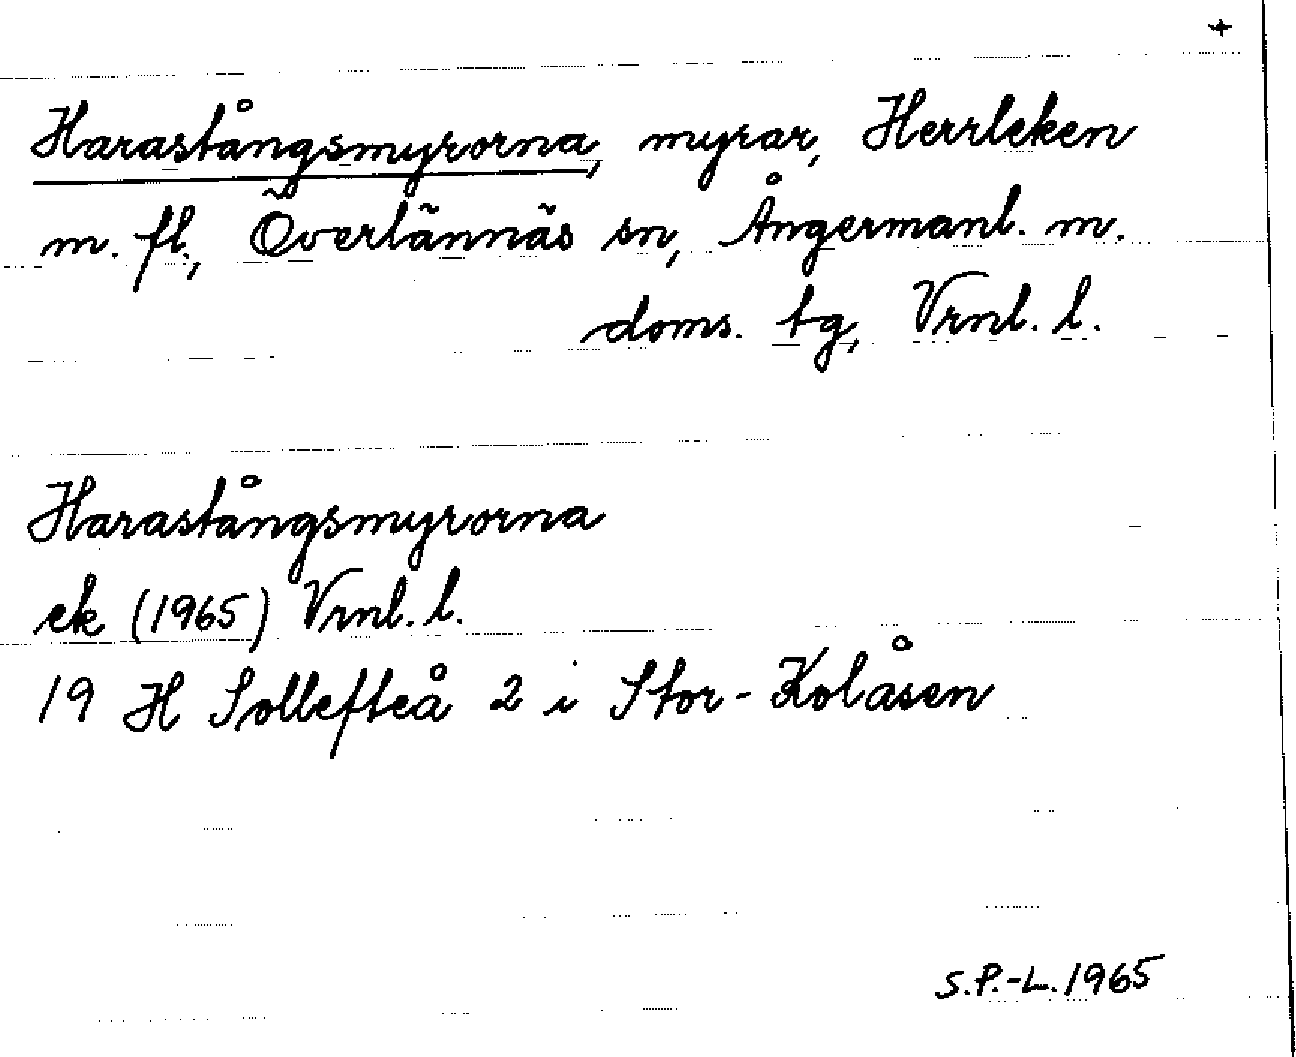 +
Harastångsmyrorna, myrar, Herrleken
m. fl., Överlännäs sn, Ångermanl. m.
doms. tg, Vrnl. l.
Harastångsmyrorna
ek (1965) Vrnl. l.
19 H Sollefteå 2 i Stor-Kolåsen
S.P.-L. 1965